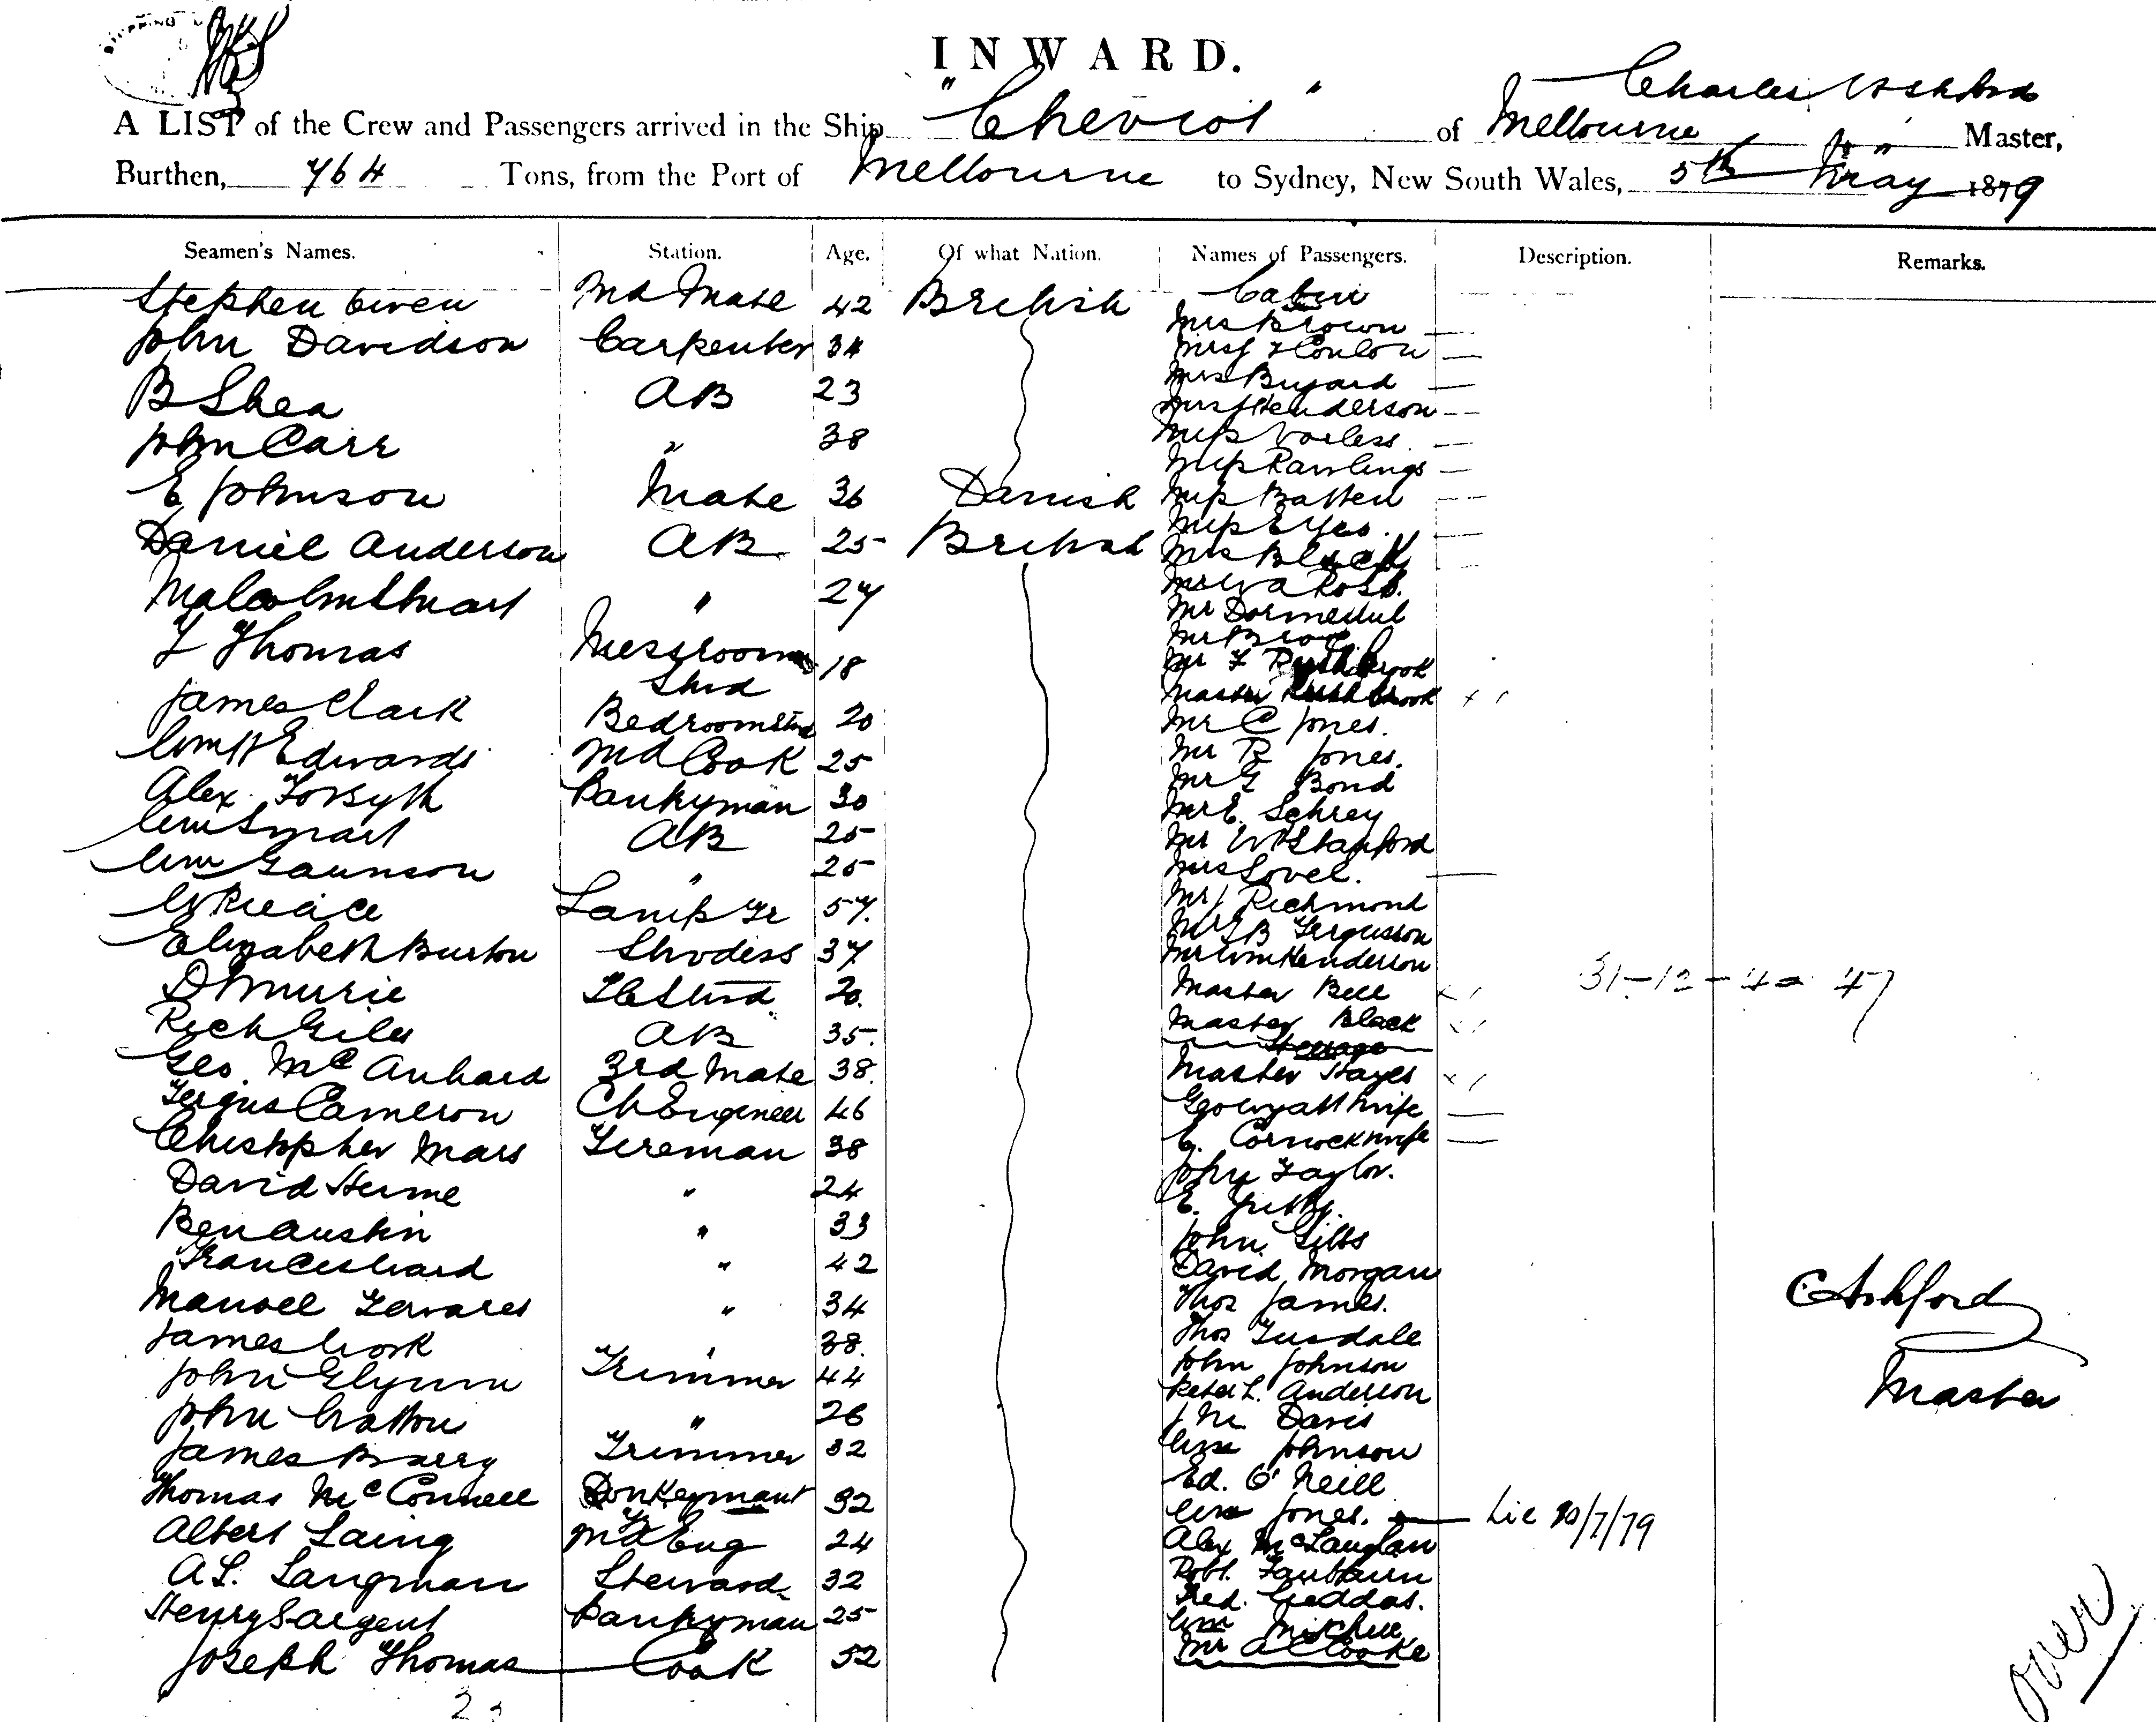 INWARD.
Charles Ashford
A LIST of the Crew and Passengers arrived in the Ship "Cheviot" of Melbourne Master,
Burthen, 764 Tons, from the Port of Melbourne to Sydney, New South Wales, 5th May 1879
Seamen's Names. Station. Age. Of what Nation. Names of Passengers. Description. Remarks.
Stephen Owen 2nd Mate 42 British Cabin
Mrs Brown
John Davidson Carpenter 34
Conlon
B Shea AB 23
Mrs Henderson
John Carr " 38
Miss Rawlings
E Johnson Mate 36 Danish Miss Batten
Daniel Anderson AB 25 British
Mrs Black
Malcolm Stuart " 27
Mr
Thomas Messroom Stwd 18
Mr F Rushbrook
Master Rushbrook
James Clark Bedroom Stwd 20 Mr C Jones.
Wm H Edwards 2nd Cook 25 Mr R Jones.
Mr G Bond
Alex Forsyth Pantryman 30 Mr E. Schrey
Wm Smart AB 25 Mr W Stanford
Wm Gaunson " 25 Mrs Lovel.
Lamp Tr 57. Mr J Richmond
Mr B Fergusson
Elizabeth Burton Stwdess 37 Mr Wm Henderson
D Murie Stwd 20. Master Bell 31-12-4=47
Rich Giles AB 35. Master Black
Steerage
Geo. 3rd Mate 38. Master Hayes
Fergus Cameron Ch Engineer 46 Geo Wyatt & wife
Christopher Mars Fireman 38 Cornock & wife
David Hume " 24 John Taylor.
E.
Ben Austin " 33 John Gibbs
Frances Ward " 42 David Morgan
Manoel " 34 Thos James.
C Ashford
James Work " 38. Thos
John Glynn Trimmer 44 John Johnson
Peter L. Anderson
Master
John " 26 Davis
James Barry Trimmer 32 Wm Johnson
Ed. O'Neill
Thomas McConnell Donkeyman 32 Wm Jones. Lic 10/7/79
Albert Laing 2nd Eng 24 Alex McLauglan
A L. Langman Steward 32 Robt. Fairbairn
Fred. Geddas.
Henry Sargent Pantryman 25 Wm Mitchell
Joseph Thomas Cook 52 Mr A C Cooke
over